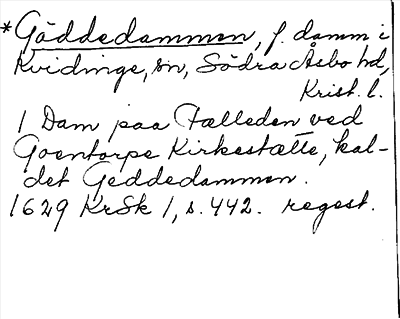 *Gäddedammen, f. damm i
Kvidinge, sn, Södra Åsbo hd,
Krist. l.
1 Dam paa Fælleden ved
Goentorps Kirkestætte, kal-
det Geddedammen.
1629 KrSk 1, s. 442. regest.